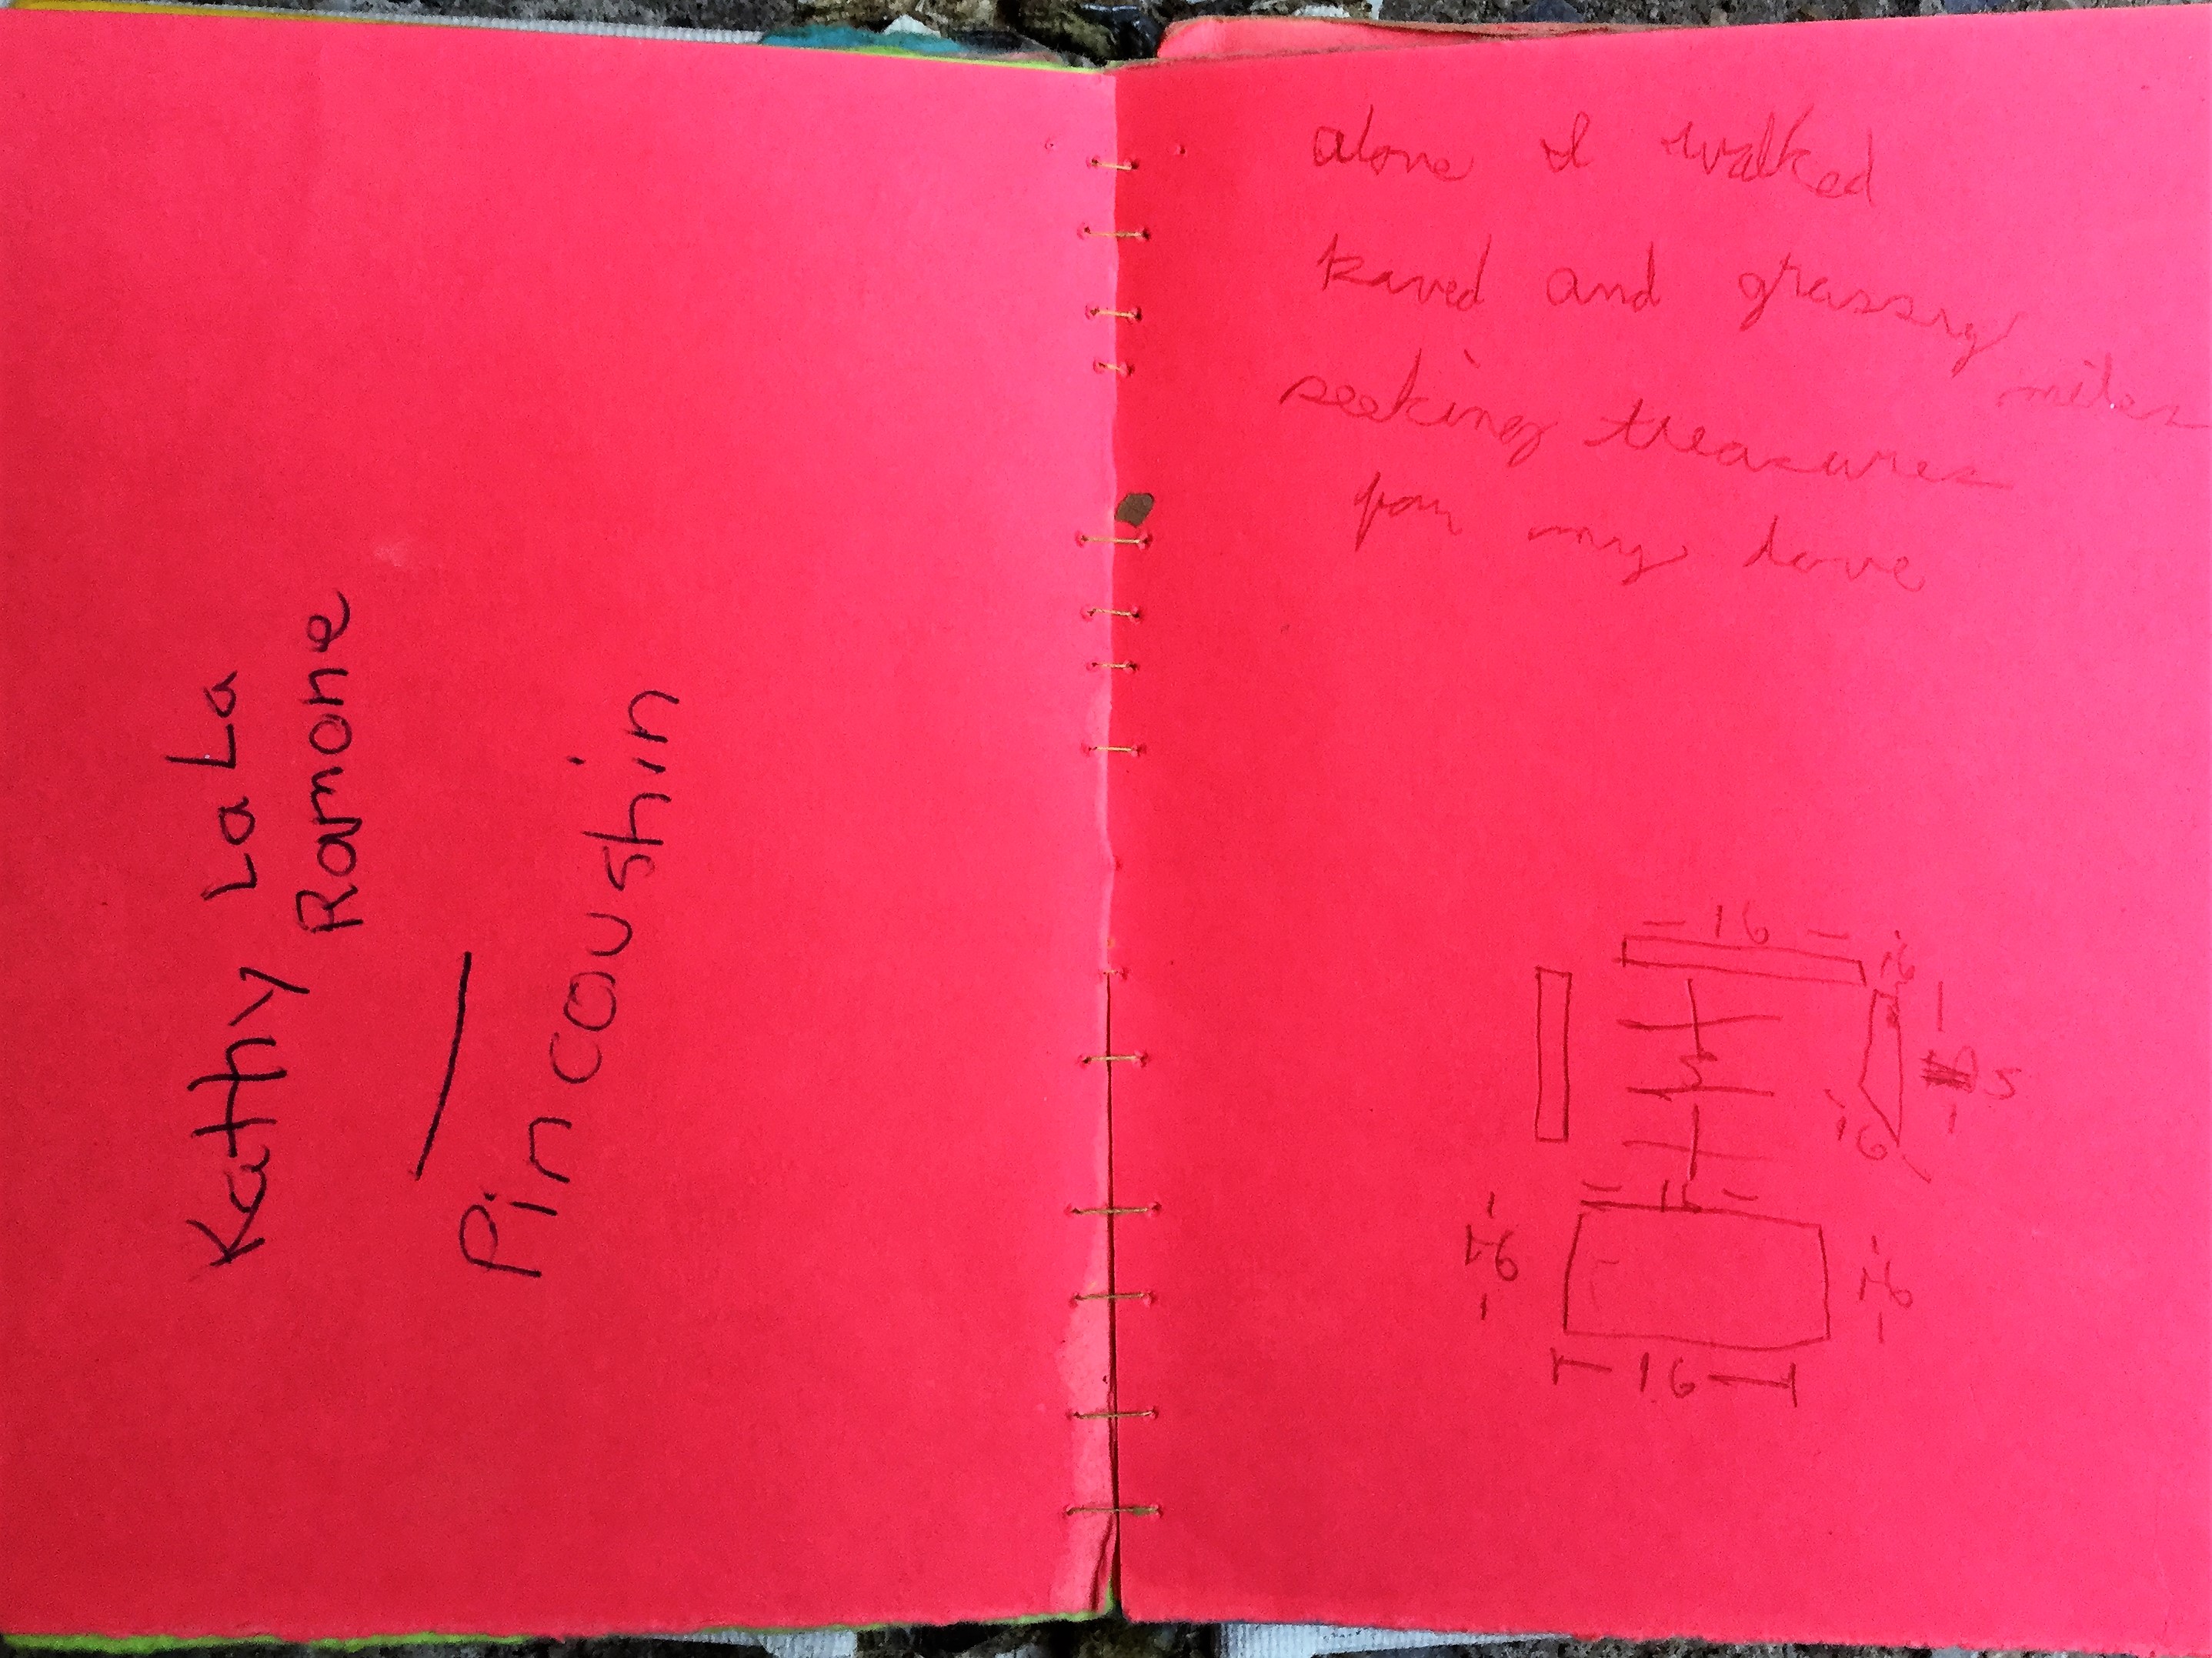 Kathy La La
Ramone
Pin coushin
alone I walked
and grassy
miles
seeking treasures
for my love
16
16
5
16